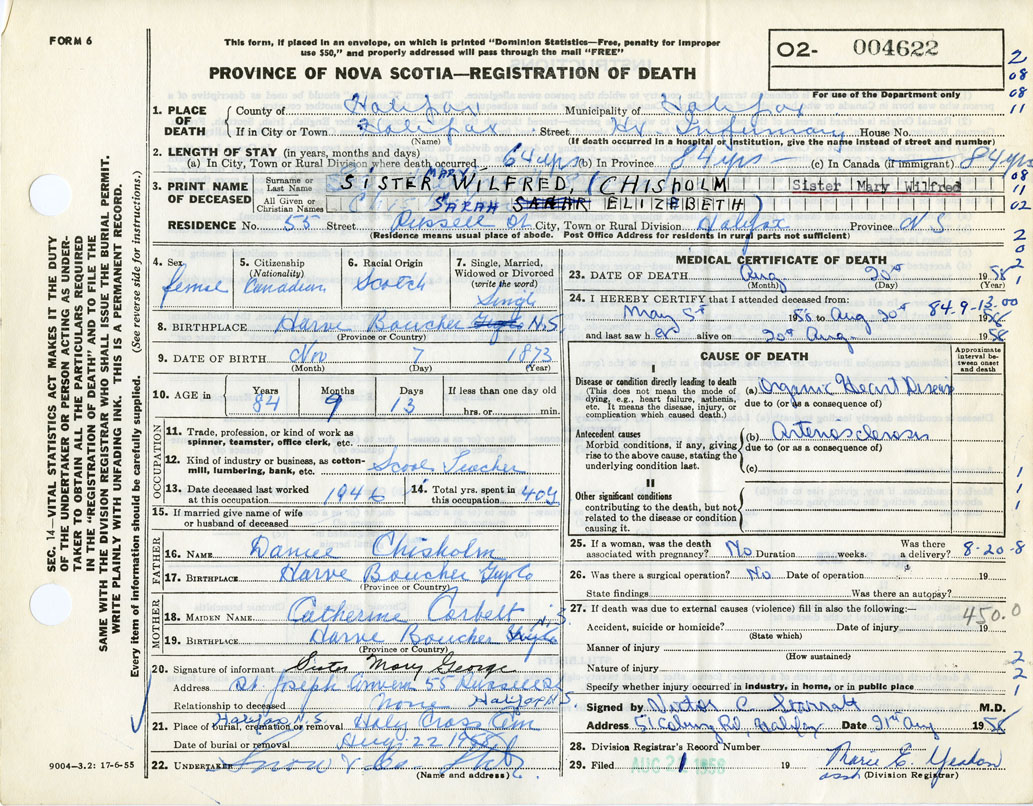 FORM 6
This form, if placed in an envelope, on which is printed "Dominion Statistics—Free, penalty for improper
use $50," and properly addressed will pass through the mail "FREE"
PROVINCE OF NOVA SCOTIA—REGISTRATION OF DEATH
O2- 004622
For use of the Department only
2
08
08
11
1. PLACE OF DEATH
County of Halifax Municipality of Halifax
If in City or Town Halifax Street Hx Infirmary House No.
(Name) (If death occurred in a hospital or institution, give the name instead of street and number)
2. LENGTH OF STAY (in years, months and days)
(a) In City, Town or Rural Division where death occurred 64 yrs (b) In Province 84 yrs – (c) In Canada (if immigrant) 84 yrs
08
11
02
3. PRINT NAME OF DECEASED
Surname or Last Name SISTER MARY WILFRED, (CHISHOLM Sister Mary Wilfred
All Given or Christian Names SARAH SARAH ELIZABETH)
RESIDENCE No. 55 Street Russell St City, Town or Rural Division Halifax Province N S
(Residence means usual place of abode. Post Office Address for residents in rural parts not sufficient)
2
0
2
1
4. Sex
female
5. Citizenship
(Nationality)
Canadian
6. Racial Origin
Scotch
7. Single, Married,
Widowed or Divorced
(write the word)
Single
8. BIRTHPLACE Harve Boucher Guyco N.S.
(Province or Country)
9. DATE OF BIRTH Nov 7 1873
(Month) (Day) (Year)
10. AGE in
Years Months Days If less than one day old
84 9 13 hrs. or min.
OCCUPATION
11. Trade, profession, or kind of work as
spinner, teamster, office clerk, etc.
12. Kind of industry or business, as cotton-
mill, lumbering, bank, etc. Scool Teacher
13. Date deceased last worked
at this occupation 1946
14. Total yrs. spent in
this occupation 40 y
15. If married give name of wife
or husband of deceased
FATHER
16. NAME Daniel Chisholm
17. BIRTHPLACE Harve Boucher Guyco
(Province or Country)
MOTHER
18. MAIDEN NAME Catherine Corbett
19. BIRTHPLACE Harve Boucher Guyco N.S.
(Province or Country)
20. Signature of informant Sister Mary George
Address St Joseph Convent 55 Russell St
Relationship to deceased None Halifax N.S.
21. Place of burial, cremation or removal Halifax N.S. Holy Cross Cem
Date of burial or removal Aug 22 1958
22. UNDERTAKER Snow & Co
(Name and address)
9004-3.2: 17-6-55
MEDICAL CERTIFICATE OF DEATH
23. DATE OF DEATH Aug 20th 1958
(Month) (Day) (Year)
24. I HEREBY CERTIFY that I attended deceased from:
May 5th 1958 to Aug 20th 1958
84-9-13
and last saw her alive on 20th Aug 1958
CAUSE OF DEATH
Approximate
interval be-
tween onset
and death
I
Disease or condition directly leading to death
(This does not mean the mode of
dying, e.g., heart failure, asthenia,
etc. It means the disease, injury, or
complication which caused death.)
(a) Organic Heart Disease
due to (or as a consequence of)
Antecedent causes
Morbid conditions, if any, giving
rise to the above cause, stating the
underlying condition last.
(b) Arteriosclerosis
due to (or as a consequence of)
(c)
II
Other significant conditions
contributing to the death, but not
related to the disease or condition
causing it.
1
1
1
1
25. If a woman, was the death
associated with pregnancy? No Duration weeks. Was there
a delivery? 8-20-8
26. Was there a surgical operation? No Date of operation 19
State findings Was there an autopsy?
27. If death was due to external causes (violence) fill in also the following:—
450.0
Accident, suicide or homicide? Date of injury 19
(State which)
Manner of injury
(How sustained)
Nature of injury
Specify whether injury occurred in industry, in home, or in public place
2
2
1
Signed by Victor C Starratt M.D.
Address 51 Coburg Rd, Halifax Date 21st Aug 1958
28. Division Registrar's Record Number
29. Filed AUG 21 1958 19 Marie E.
asst (Division Registrar)
SEC. 14—VITAL STATISTICS ACT MAKES IT THE DUTY
OF THE UNDERTAKER OR PERSON ACTING AS UNDER-
TAKER TO OBTAIN ALL THE PARTICULARS REQUIRED
IN THE "REGISTRATION OF DEATH" AND TO FILE THE
SAME WITH THE DIVISION REGISTRAR WHO SHALL ISSUE THE BURIAL PERMIT.
WRITE PLAINLY WITH UNFADING INK. THIS IS A PERMANENT RECORD.
Every item of information should be carefully supplied. (See reverse side for instructions.)